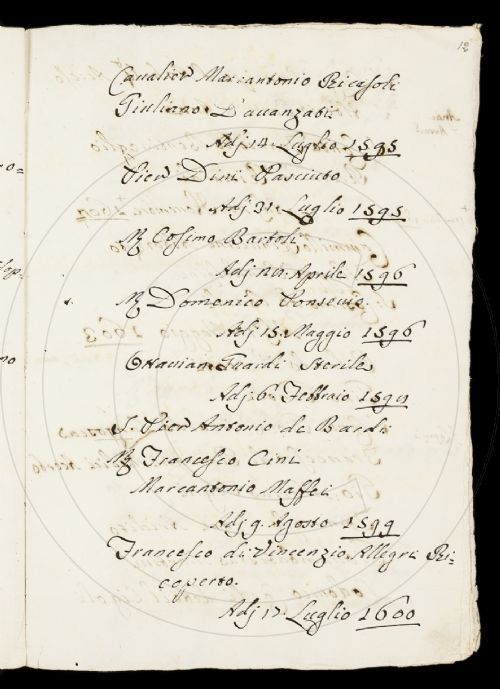 12
Cavalier Marcantonio Ricasoli
Giuliano Davanzati
Adj 14. Luglio 1595
Pier Dini Pasciuto
Adj 31. Luglio 1595
M. Cosimo Bartoli
Adj Aprile 1596
M. Domenico
Adj 15. Maggio 1596
Ottavian Guardi Sterile
Adj 6. Febbraio
S. Pier Antonio de Bardi
M. Francesco Cini
Marcantonio Maffei
Adj 9. Agosto 1599
Francesco di Vincenzio Allegri Ri=
coperto.
Adj 17. Luglio 1600